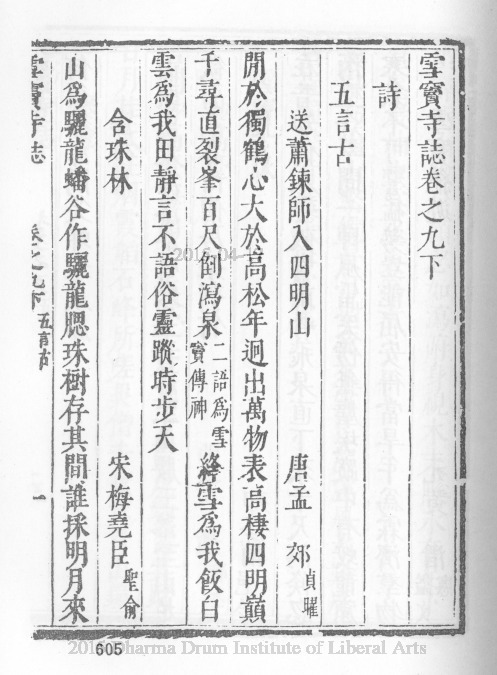 雪竇寺誌卷之九下
詩
五言古
送蕭鍊師入四明山 唐孟 郊貞曜
閒於獨鶴心大於高松年迥出萬物表高棲四明巔
千尋直裂峯百尺倒瀉泉二語爲雪竇傳神絳雪爲我飯白
雲爲我田靜言不語俗靈蹤時步天
含珠林 宋梅堯臣聖俞
山爲驪龍蟠谷作驪龍腮珠樹存其間誰採明月來
雪竇寺誌 卷之九下 五言古 一
605
Dharma Drum Institute of Liberal Arts